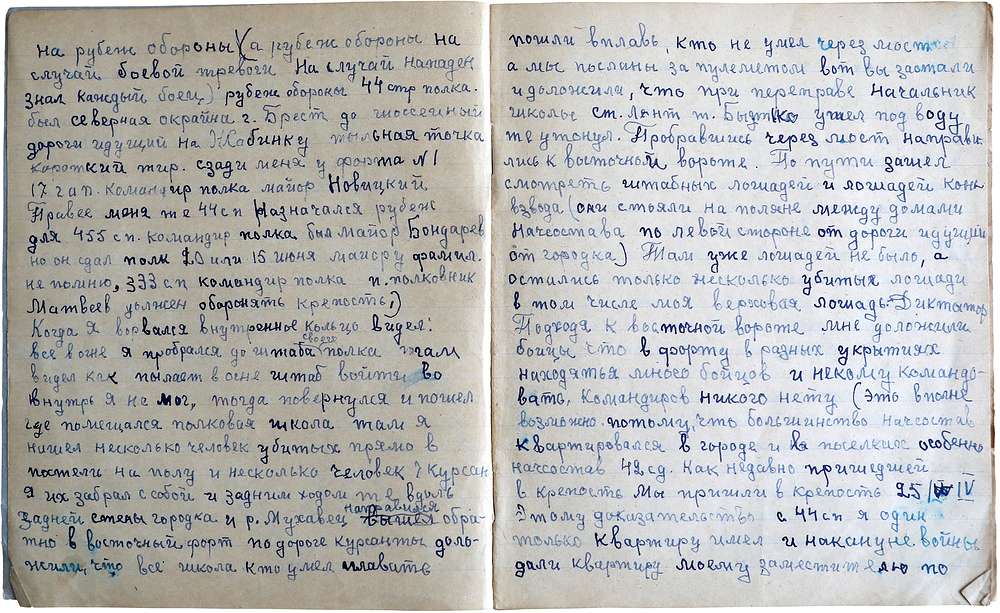 на рубеж обороны (а рубеж обороны на
случай боевой тревоги На случай нападен.
знал каждый боец) рубеж обороны 44 стр полка.
был северная окрайна г. Брест до шоссейной
дороги идущий на Кобинку тыльная точка
короткий тир. сзади меня у форта N1
17 гап. командир полка майор Новицкий
Правее меня же 44 сп назначался рубеж
для 455 сп. командир полка был майор Бондарев
но он сдал полк 20 или 15 июня майору фамил.
не помню, 333 сп командир полка п. полковник
Матвеев должен оборонять крепость.)
Когда я ворвался внутренное кольцо видел:
все в огне я пробрался до штаба своего полка и там
видел как пылает в огне штаб войти во
внутрь я не мог, тогда повернулся и пошел
где помещался полковая школа там я
нашел несколько человек убитых прямо в
постели на полу и несколько человек 7 курсан
я их забрал с собой и задним ходом т.е. вдоль
задней стены городка и р. Мухавец направился вышел обра-
тно в восточный форт по дороге курсанты доло-
жили, что все школа кто умел плавать
пошли вплавь, кто не умел через мост
а мы посланы за пулеметом вот вы застали
и доложили, что при переправе начальник
школы ст. Лент т. Бытко ушел под воду
т.е утонул. Пробравшись через мост направи-
лись к восточной вороте. По пути зашел
смотреть штабных лошадей и лошадей конь
взвода (они стояли на поляне между домами
начсостава по левой стороне от дороги идущий
от городка) Там уже лошадей не было, а
остались только несколько убитых лошади
в том числе моя верховая лошадь-Диктатор
Подходя к восточной вороте мне доложили
бойцы что в форту в разных укрытиях
находятья много бойцов и некому командо-
вать. Командиров никого нету (Это вполне
возможно потому, что большинство начсостав
квартировался в городе и в поселках особенно
начсостав 42 сд. Как недавно пришедшей
в крепость Мы пришли в крепость 25/IV
Этому доказательство с 44 сп я один
только квартиру имел и накануне войны
дали квартиру моему заместителю по